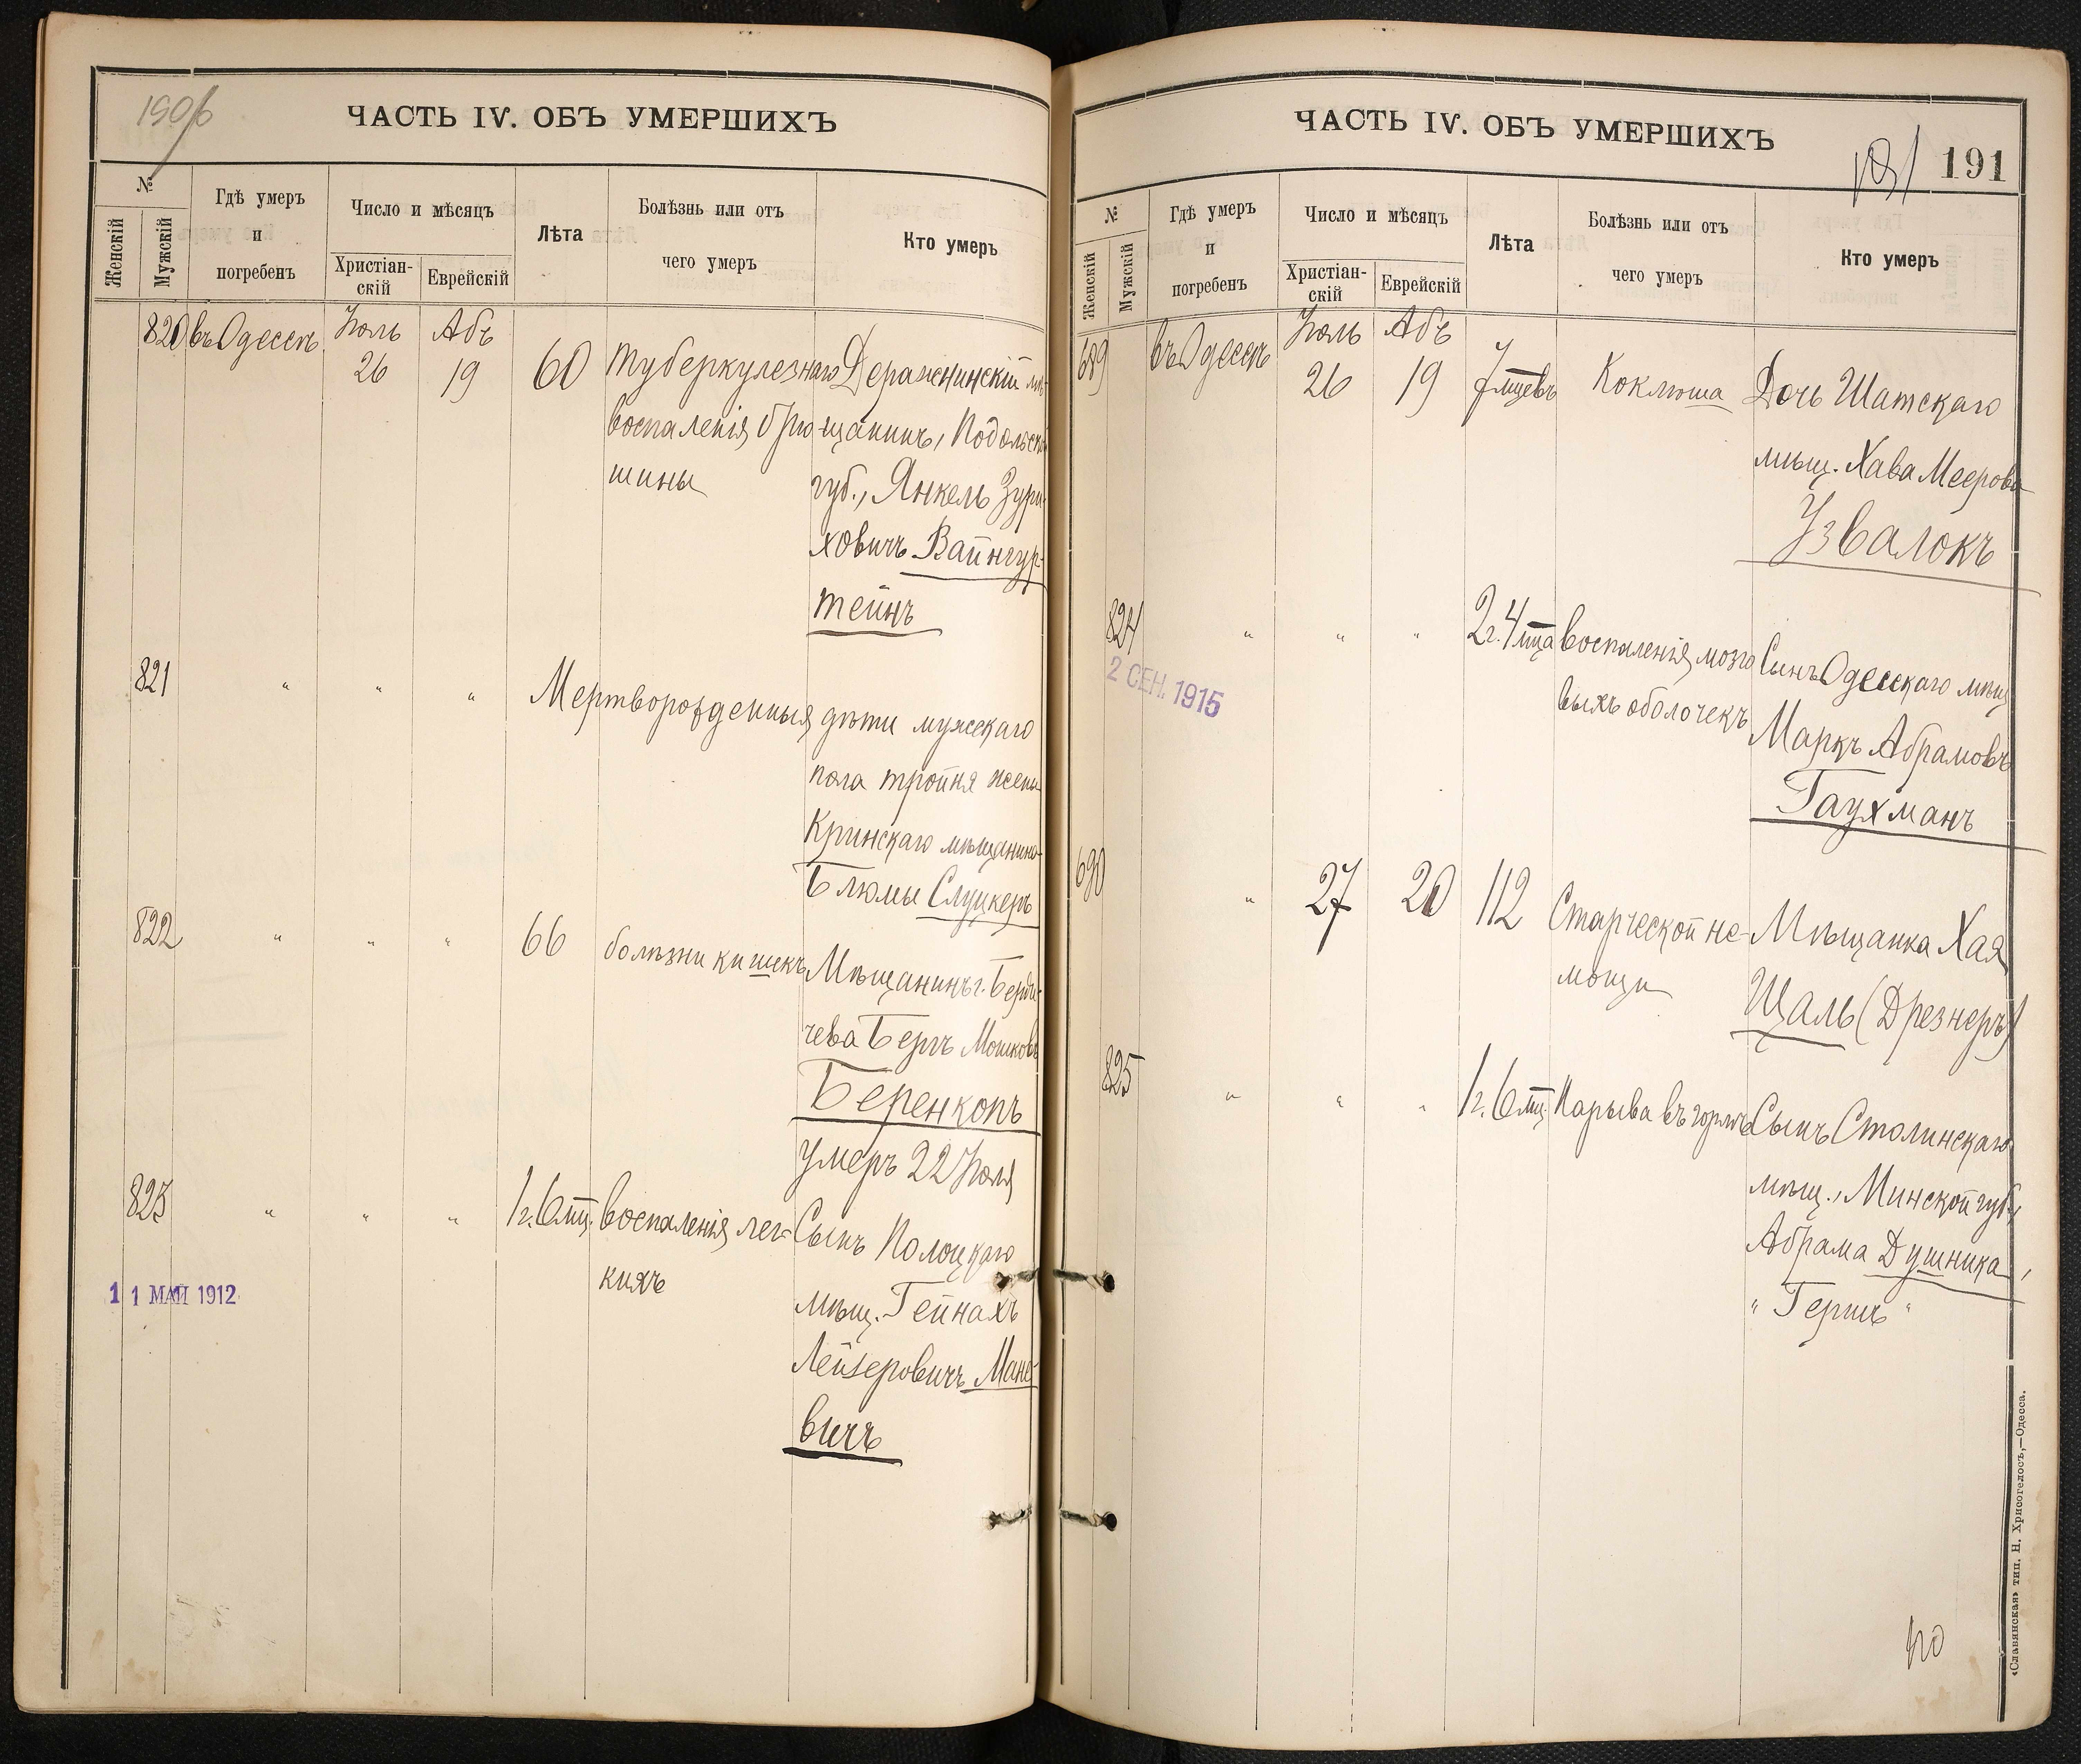 1906
ЧАСТЬ IV. ОБЪ УМЕРШИХЪ
№
Женскій
Мужскій
Гдѣ умеръ
и
погребенъ
Число и мѣсяцъ
Христіан-
скій
Еврейскій
Лѣта
Болѣзнь или отъ
чего умеръ
Кто умеръ
820 въ Одессѣ Іюль 26 Абъ 19 60 Туберкулезнаго Деражнинскій мѣ-
воспаленія брю- щанинъ, Подольской
шины губ., Янкель Зури-
ховичъ Вайнгур-
тейнъ
821 " " " Мертворожденныя дѣти мужскаго
пола тройня жены
Кринскаго мѣщанина
Блюмы Слуцкеръ
822 " " " 66 болѣзни кишекъ Мѣщанинъ г. Берди-
чева Беръ Мошковъ
Беренкопъ
умеръ 22 Іюля
823 " " " 1 г. 6 мц. воспаленія лег- Сынъ Полоцкаго
кихъ мѣщ. Гейнахъ
11 МАЙ 1912
Лейзеровичъ Мане-
вичъ
ЧАСТЬ IV. ОБЪ УМЕРШИХЪ
191 191
№
Женскій
Мужскій
Гдѣ умеръ
и
погребенъ
Число и мѣсяцъ
Христіан-
скій
Еврейскій
Лѣта
Болѣзнь или отъ
чего умеръ
Кто умеръ
689 въ Одессѣ Іюль 26 Абъ 19 7 мцевъ Коклюша Дочь Шатскаго
мѣщ. Хава Меерова
Узвалокъ
824 " " " 2 г. 4 мца воспаленія мозго Сынъ Одесскаго мѣщ
выхъ оболочекъ Маркъ Абрамовъ
2 СЕН. 1915
Гаухманъ
690 " 27 20 112 Старческой не- Мѣщанка Хая
мощи Щаль (Дрезнеръ)
825 " " " 1 г. 6 мц. Нарыва въ горлѣ Сынъ Столинскаго
мѣщ., Минской губ.,
Абрама Душника,
" Гершъ "
«Славянская» тип. Н. Хрисогелосъ,—Одесса.